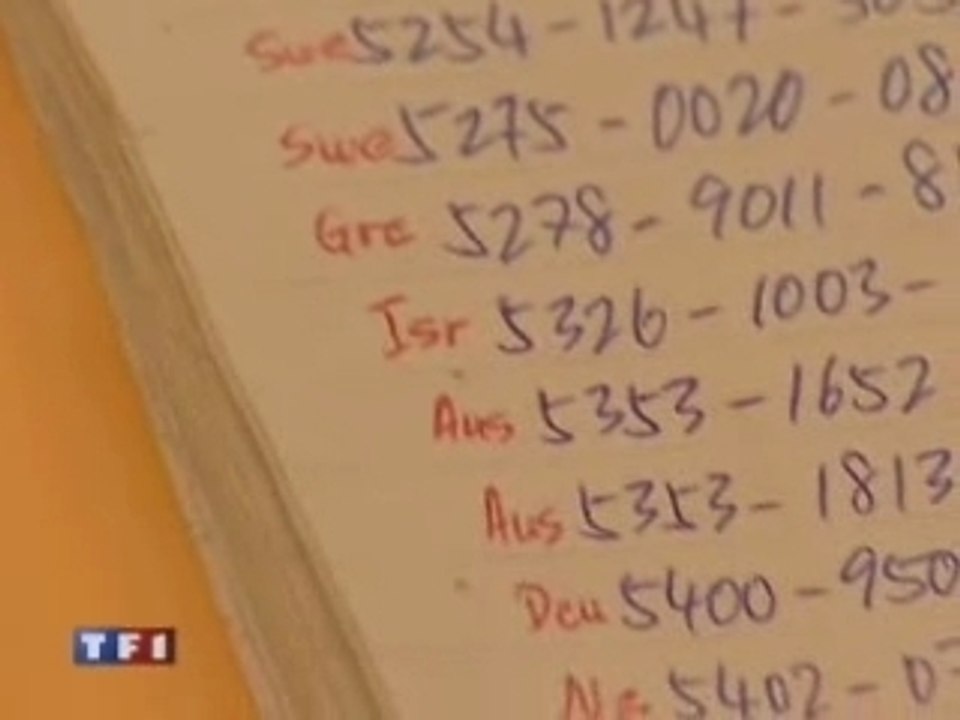 Swe 5254 - 1247 -
Swe 5275 - 0020 - 08
Gre 5278 - 9011 - 8
Isr 5326 - 1003 -
Aus 5353 - 1652
Aus 5353 - 1813
Deu 5400 - 950
Ne 5402 - 0
TF1